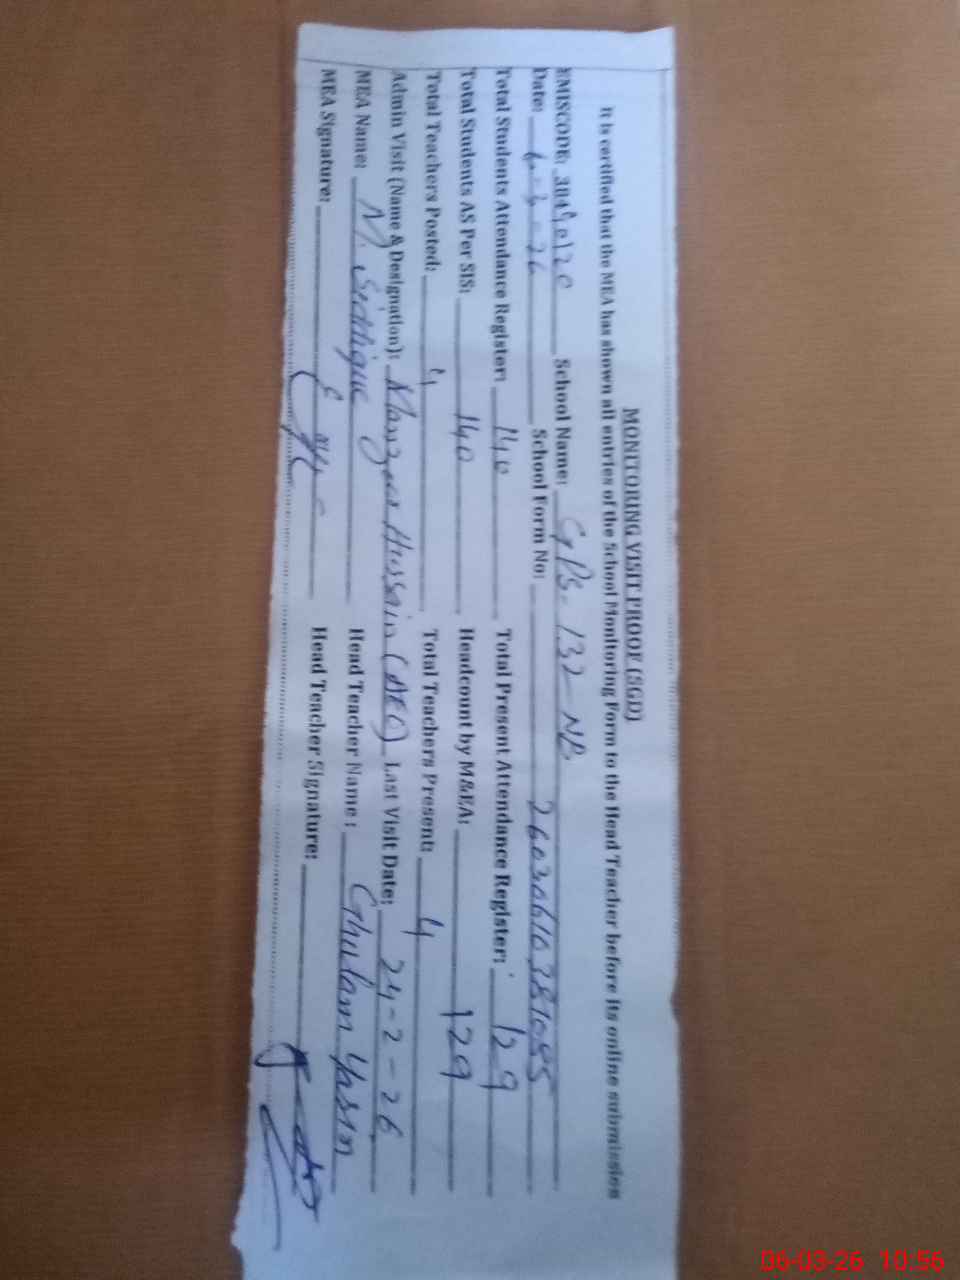 MONITORING VISIT PROOF (SGD)
It is certified that the MEA has shown all entries of the School Monitoring Form to the Head Teacher before its online submission
EMISCODE: 38490120 School Name: GPS-132-NB
Date: 6-3-26 School Form No: 26030610381085
Total Students Attendance Register: 140 Total Present Attendance Register: 129
Total Students AS Per SIS: 140 Headcount by M&EA: 129
Total Teachers Posted: 4 Total Teachers Present: 4
Admin Visit (Name & Designation): Manzoor Hussain (AEO) Last Visit Date: 24-2-26
MEA Name: M. Siddique Head Teacher Name: Ghulam Yasin
MEA Signature: Head Teacher Signature:
06-03-26 10:56